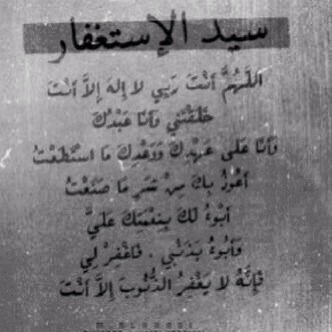 سيد الإستغفار
اللَّهُمَّ أَنْتَ رَبِّي لا إِلهَ إِلاَّ أَنْتَ
خَلَقْتَنِي وَأَنَا عَبْدُكَ
وَأَنَا عَلَى عَهْدِكَ وَوَعْدِكَ مَا اسْتَطَعْتُ
أَعُوذُ بِكَ مِنْ شَرِّ مَا صَنَعْتُ
أَبُوءُ لَكَ بِنِعْمَتِكَ عَلَيَّ
وَأَبُوءُ بِذَنْبِي . فَاغْفِرْ لِي
فَإِنَّهُ لا يَغْفِرُ الذُّنُوبَ إِلاَّ أَنْتَ